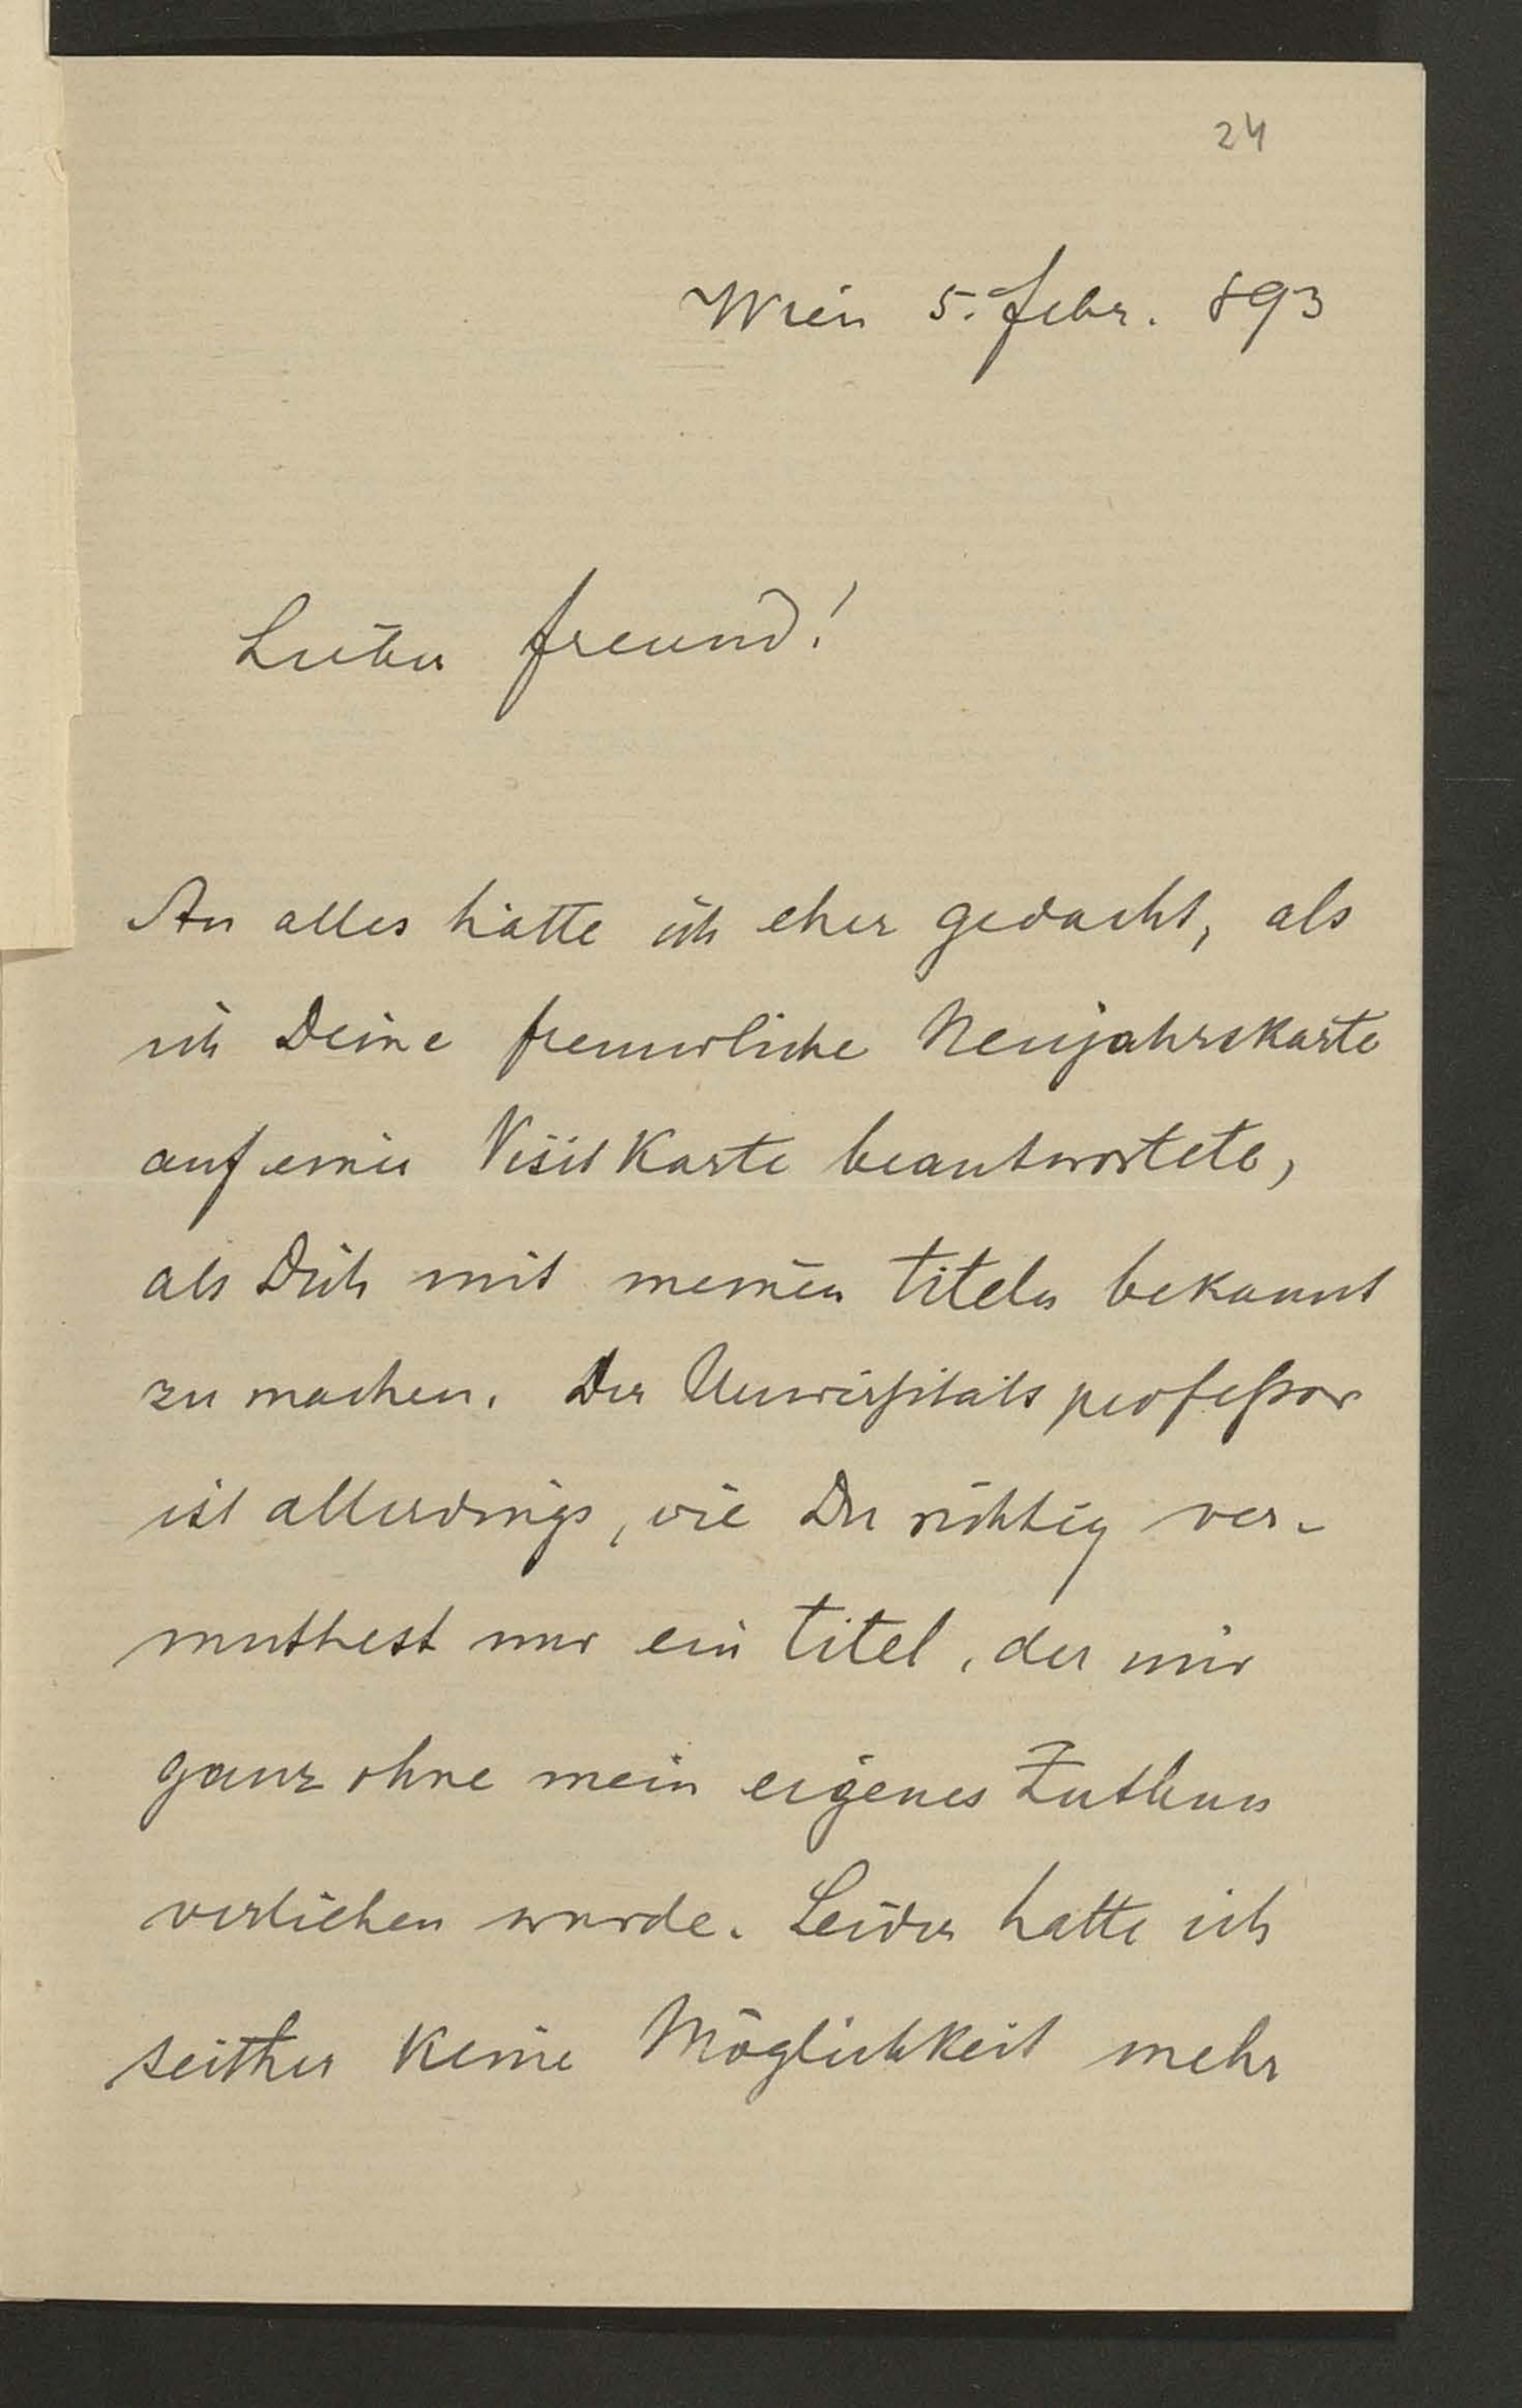 24
Wien 5. Febr. 893
Lieber Freund!
An alles hätte ich eher gedacht, als
ich Deine freundliche Neujahrskarte
auf einer Visitkarte beantwortete,
als Dich mit meinen Titeln bekannt
zu machen. Der Universitätsprofeſsor
ist allerdings, wie Du richtig ver-
muthest nur ein Titel, der mir
ganz ohne mein eigenes Zuthun
verliehen wurde. Leider hatte ich
seither keine Möglichkeit mehr